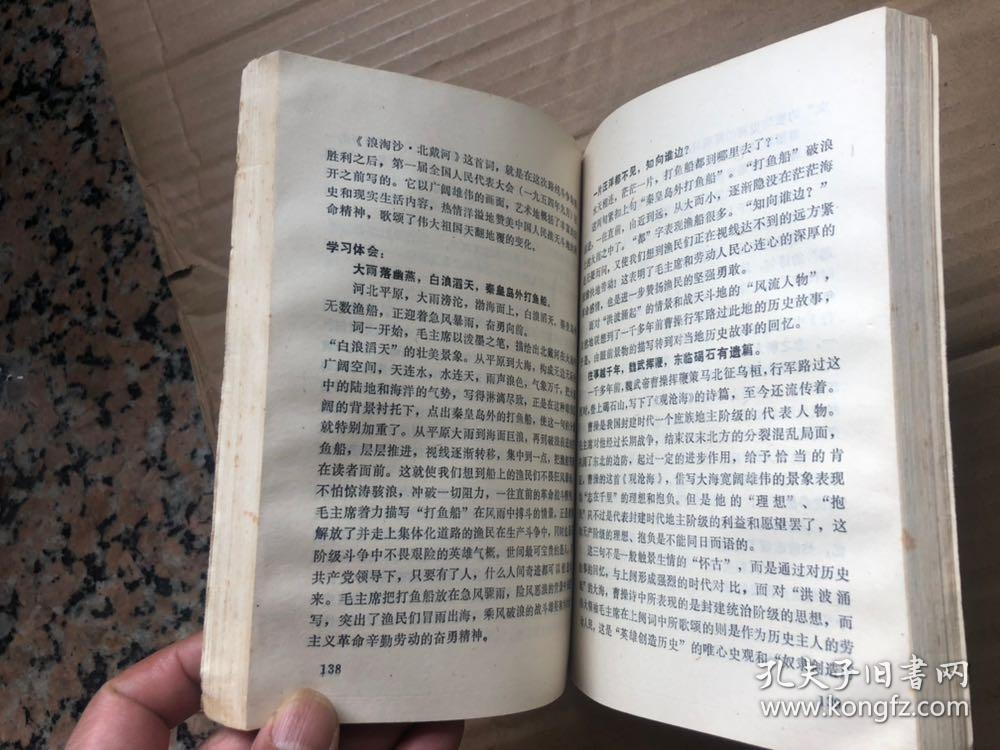 《浪淘沙·北戴河》这首词，就是在这次路线斗争
胜利之后，第一届全国人民代表大会（一九五四年九月）
开之前写的。它以广阔雄伟的画面，艺术地概括了
史和现实生活内容，热情洋溢地赞美中国人民战天斗地的
命精神，歌颂了伟大祖国天翻地覆的变化。
学习体会：
大雨落幽燕，白浪滔天，秦皇岛外打鱼船。
河北平原，大雨滂沱，渤海面上，白浪滔天，秦皇岛
无数渔船，正迎着急风暴雨，奋勇向前。
词一开始，毛主席以泼墨之笔，描绘出北戴河在大雨
“白浪滔天”的壮美景象。从平原到大海，构成无边无
广阔空间，天连水，水连天，雨声浪色，气象万千，把
中的陆地和海洋的气势，写得淋漓尽致，正是在这无
阔的背景衬托下，点出秦皇岛外的打鱼船，使这一句的分
就特别加重了。从平原大雨到海面巨浪，再到破浪前进
鱼船，层层推进，视线逐渐转移，集中到一点，把打鱼
在读者面前。这就使我们想到船上的渔民们不畏狂风暴
不怕惊涛骇浪，冲破一切阻力，一往直前的革命战斗
毛主席着力描写“打鱼船”在风雨中搏斗的情景，正
解放了并走上集体化道路的渔民在生产斗争中，同
阶级斗争中不畏艰险的英雄气概。世间最可宝贵的是人，
共产党领导下，只要有了人，什么人间奇迹都可以
来。毛主席把打鱼船放在急风骤雨，险风恶浪的
写，突出了渔民们冒雨出海，乘风破浪的战斗雄姿
主义革命辛勤劳动的奋勇精神。
138
一片汪洋都不见，知向谁边？
水天相连，茫茫一片，打鱼船都到哪里去了？
这两句紧扣上句“秦皇岛外打鱼船”。“打鱼船”破浪
一往直前，由近到远，从大而小，逐渐隐没在茫茫海
大雨之中了。“都”字表现渔船很多。“知向谁边？”
问，又使我们想到渔民们正在视线达不到的远方紧
快地劳动！这表明了毛主席和劳动人民心连心的深厚的
感情，也是进一步赞扬渔民的坚强勇敢。
面对“洪波涌起”的情景和战天斗地的“风流人物”，
地联想到一千多年前曹操行军路过此地的历史故事，
由眼前景物的描写转到对当地历史故事的回忆。
往事越千年，魏武挥鞭，东临碣石有遗篇。
一千多年前，魏武帝曹操挥鞭策马北征乌桓，行军路过这
时，登上碣石山，写下了《观沧海》的诗篇，至今还流传着。
曹操是我国封建时代一个庶族地主阶级的代表人物。
主席对他经过长期战争，结束汉末北方的分裂混乱局面，
了东北的边防，起过一定的进步作用，给予恰当的肯
曹操的这首《观沧海》，借写大海宽阔雄伟的景象表现
“志在千里”的理想和抱负。但是他的“理想”、“抱
只不过是代表封建时代地主阶级的利益和愿望罢了，这
无产阶级的理想、抱负是不能同日而语的。
这三句不是一般触景生情的“怀古”，而是通过对历史
事的回忆，与上阕形成强烈的时代对比，面对“洪波涌
的大海，曹操诗中所表现的是封建统治阶级的思想，而
领袖毛主席在上阕词中所歌颂的则是作为历史主人的劳
人民，这是“英雄创造历史”的唯心史观和“奴隶创造
孔夫子旧书网
www.kongfz.com